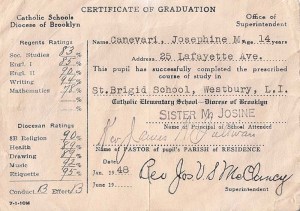 CERTIFICATE OF GRADUATION
Catholic Schools
Diocese of Brooklyn
Office of
Superintendent
Regents Ratings
Soc. Studies 83
Engl. I 85
Engl. II
Writing
Mathematics
Diocesan Ratings
8B Religion 90
Health
Drawing
Music
Etiquette 95
Conduct B Effort B
7-1-10M
Name Canevari, Josephine M. Age 14 years
Address 25 Lafayette Ave.
This pupil has successfully completed the prescribed
course of study in
St. Brigid School, Westbury, L.I.
Catholic Elementary School - Diocese of Brooklyn
SISTER M. JOSINE
Name of Principal of School Attended
Rev. James
Name of PASTOR of pupil's PARISH of RESIDENCE
Jan. 1948
June 19
Rev Jos V S McClancy
Superintendent